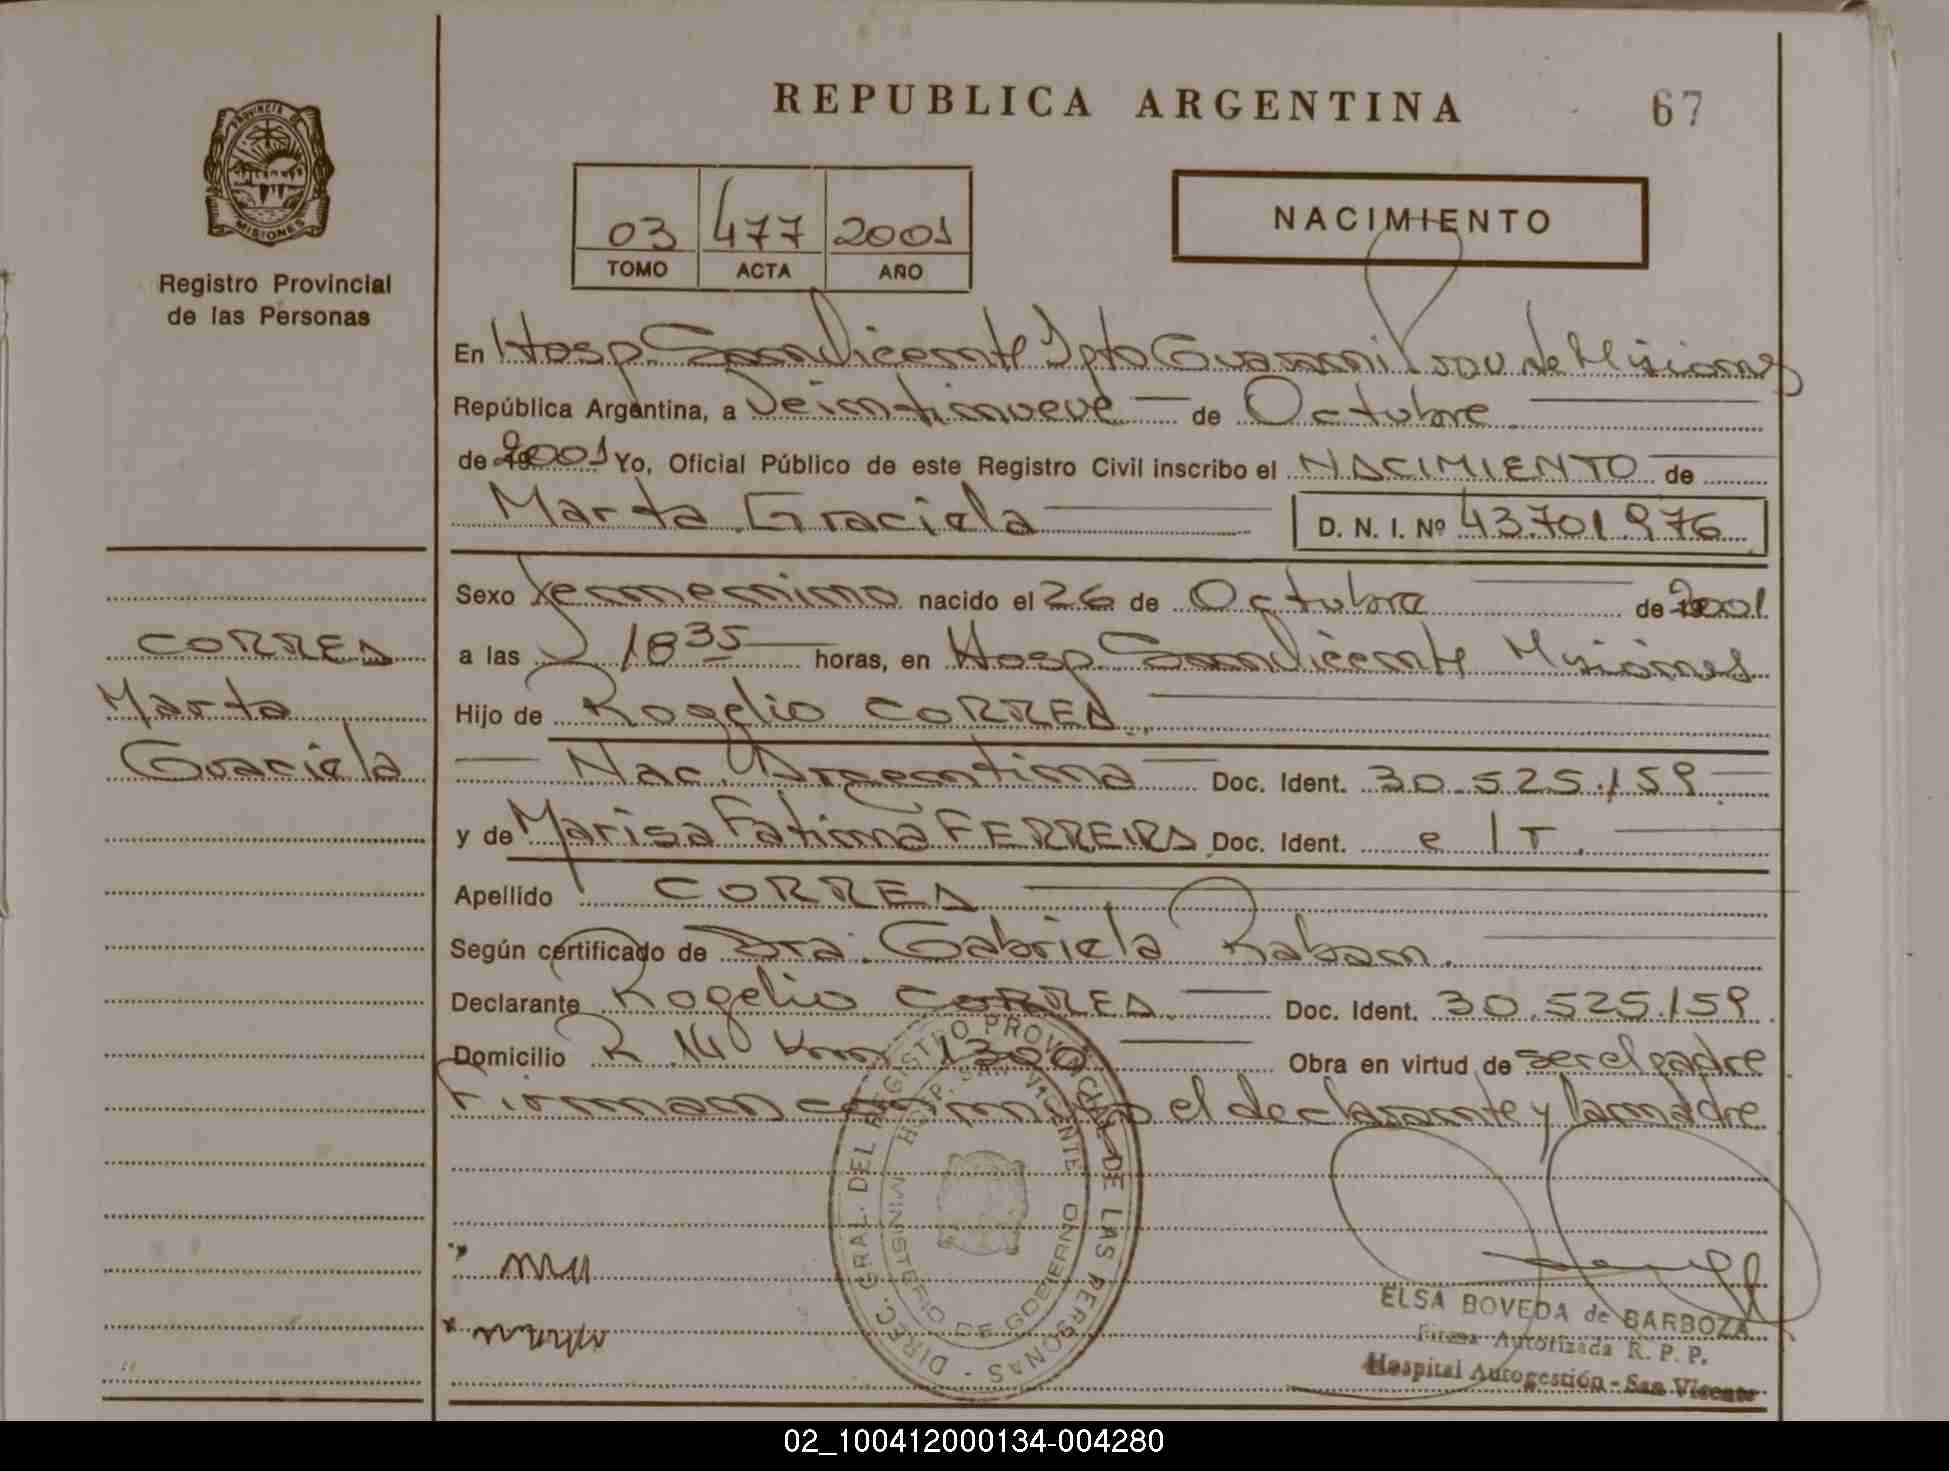 PROVINCIA DE
MISIONES
Registro Provincial
de las Personas
REPUBLICA ARGENTINA
67
03 477 2001
TOMO ACTA AÑO
NACIMIENTO
En Hosp San Vicente Dpto Guarani Prov de Misiones
República Argentina, a Veintinueve de Octubre
de 2001 Yo, Oficial Público de este Registro Civil inscribo el NACIMIENTO de
Marta Graciela D. N. I. Nº 43.701.976
Sexo Femenino nacido el 26 de Octubre de 2001
a las 18 35 horas, en Hosp San Vicente Misiones
Hijo de Rogelio CORREA
Nac. Argentina Doc. Ident. 30.525.159
y de Marisa Fatima FERREIRA Doc. Ident. e I T.
Apellido CORREA
Según certificado de Dra. Gabriela Raban.
Declarante Rogelio CORREA Doc. Ident. 30.525.159
Domicilio R 14 Km 1300 Obra en virtud de ser el padre
Firman conmigo el declarante y la madre
CORREA
Marta
Graciela
DIREC. GRAL. DEL REGISTRO PROVINCIAL DE LAS PERSONAS -
HOSP. SAN VICENTE
MINISTERIO DE GOBIERNO
ELSA BOVEDA de BARBOZA
Firma Autorizada R. P. P.
Hospital Autogestión - San Vicente
02_100412000134-004280